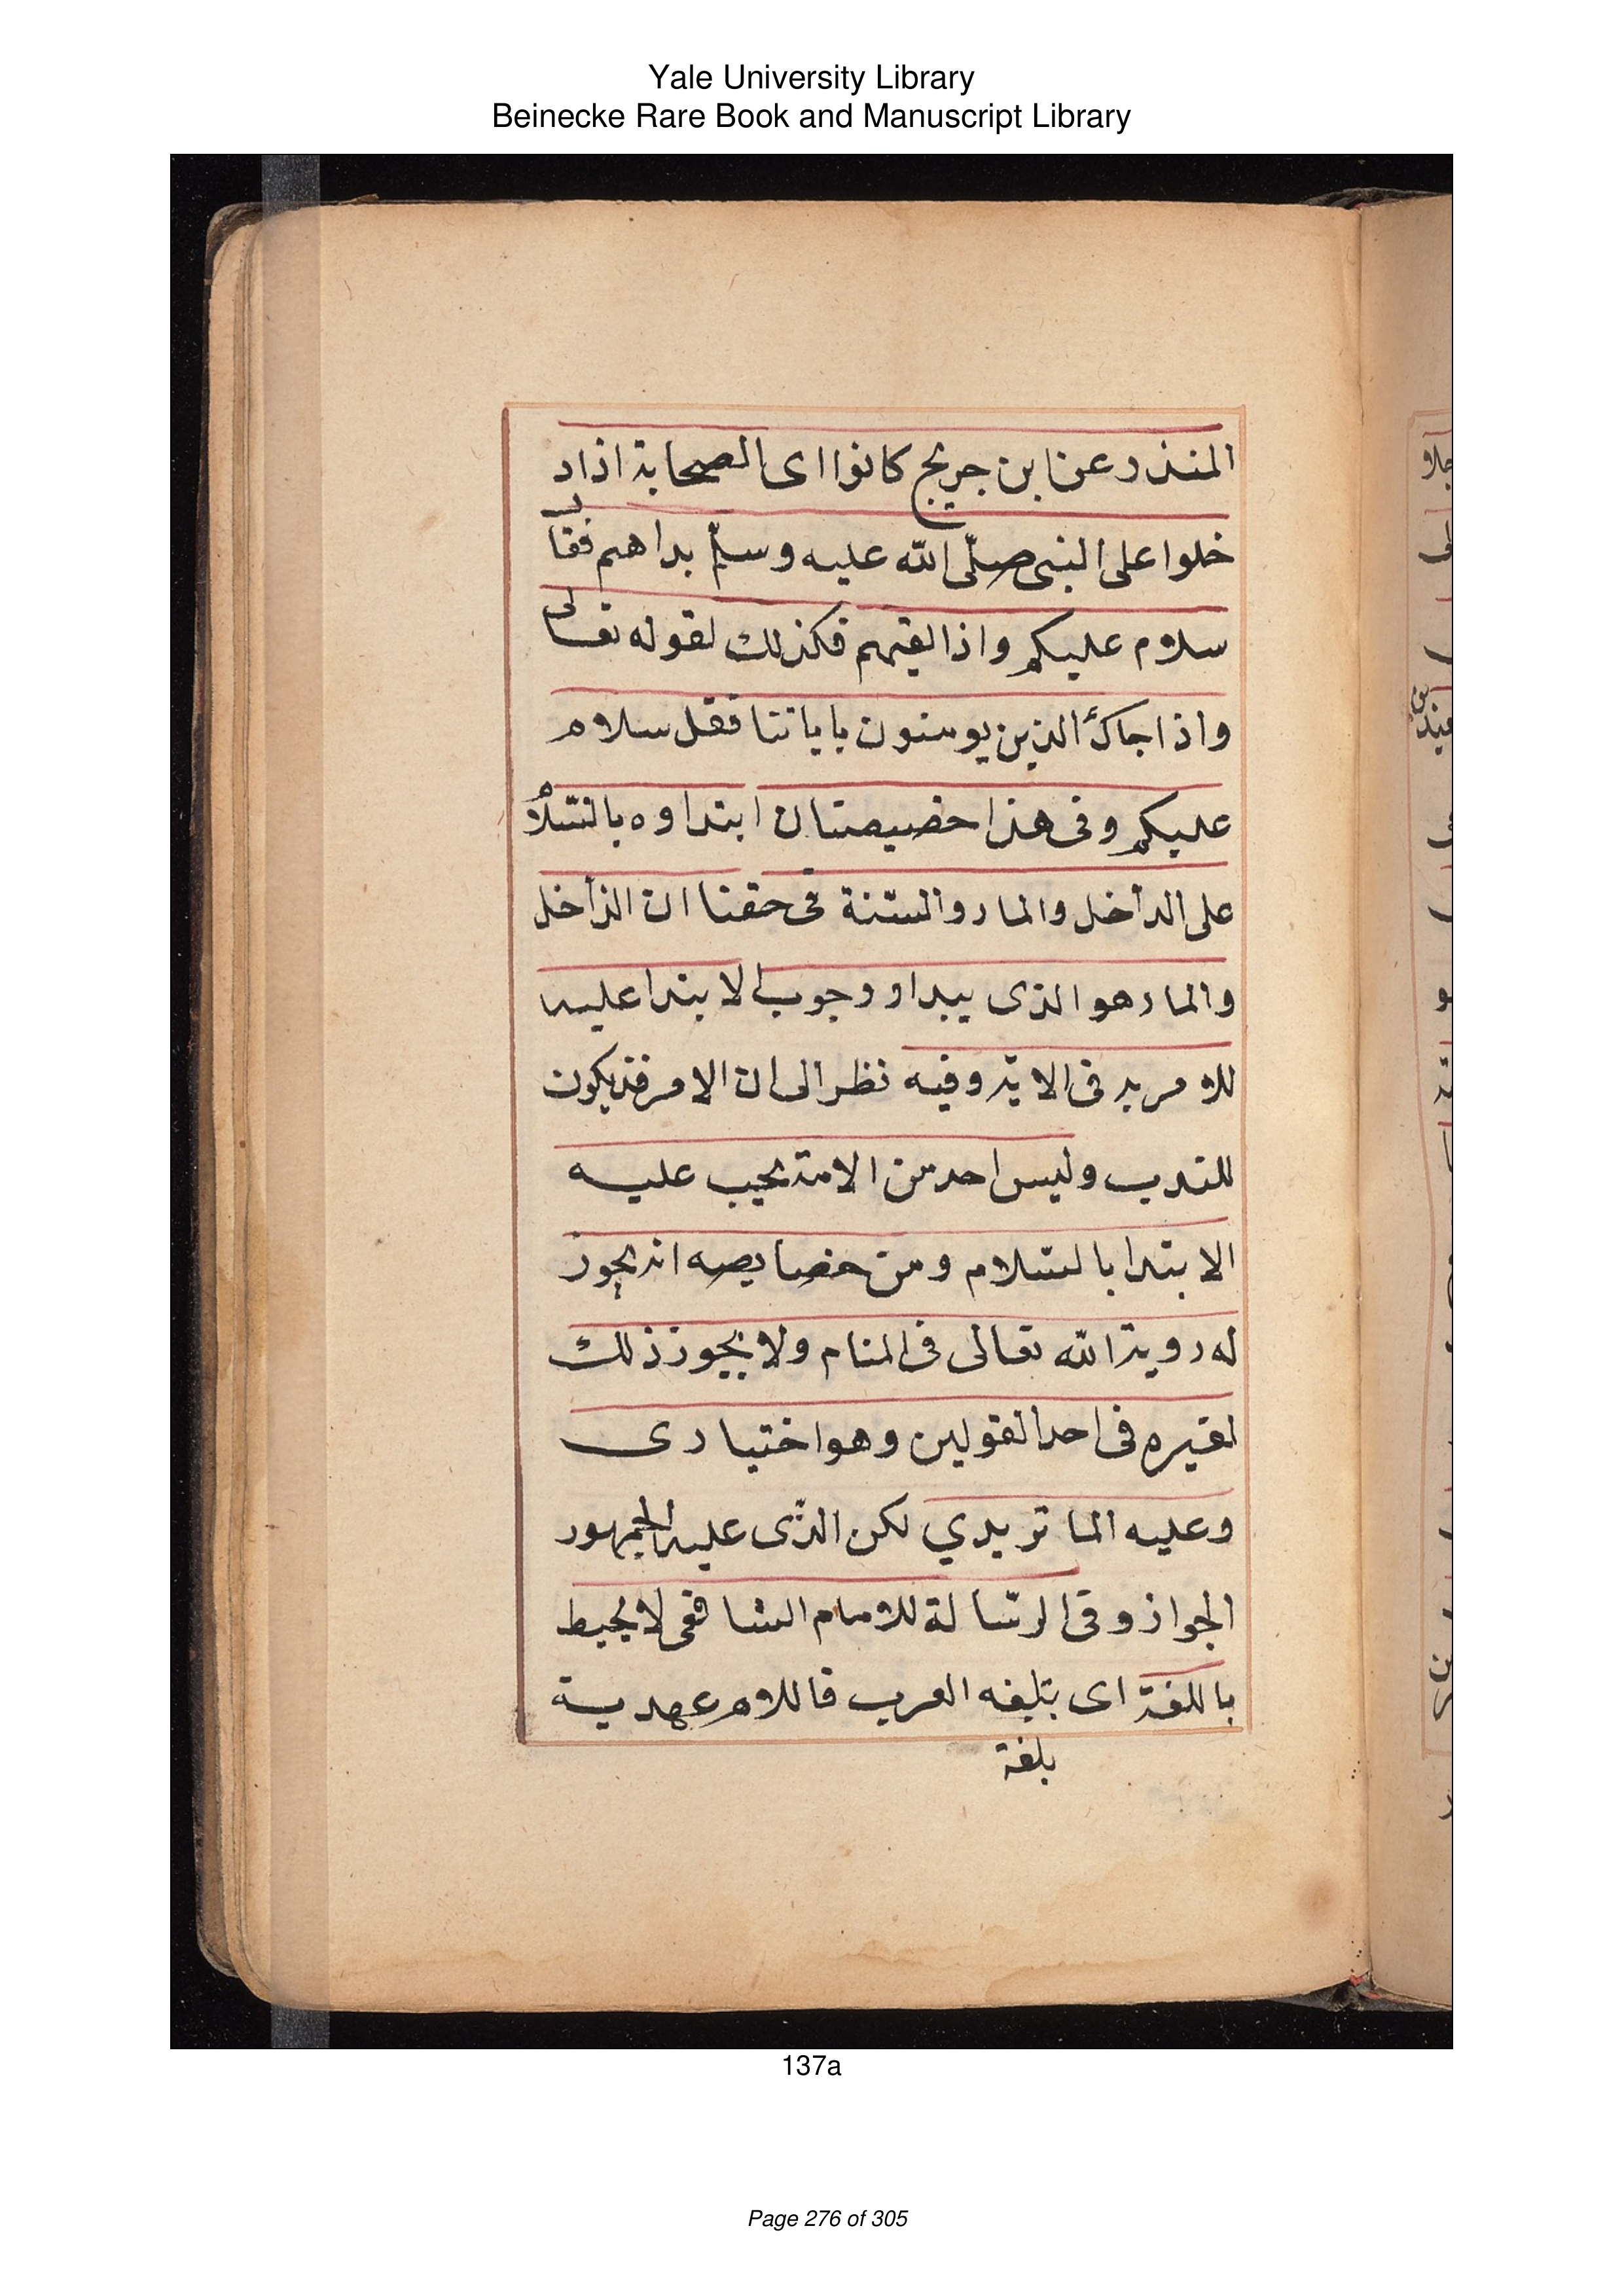 Yale University Library
Beinecke Rare Book and Manuscript Library
المنذر عن ابن جريج كانوا اى الصحابة اذا د
خلوا على النبى صلّى الله عليه وسلّم بداهم فقال
سلام عليكم واذا لقيهم فكذلك لقوله تعالى
واذا جاك الذين يومنون باياتنا فقل سلام
عليكم وفى هذا خصيصتان ابتداوه بالسّلام
على الداخل والمار والسّنة فى حقنا ان الداخل
والمار هو الذى يبدا ووجوب الابتدا عليه
للامر به فى الاية وفيه نظر الى ان الامر قد يكون
للندب وليس احد من الامة يجب عليه
الابتدا بالسّلام ومن خصايصه انه يجوز
له روية الله تعالى فى المنام ولا يجوز ذلك
لغيره فى احد القولين وهو اختيارى
وعليه الماتريدي لكن الذّى عليه الجمهور
الجواز وفى الرسّالة للامام الشافعى لا يحيط
باللغة اى بتليغه العرب فاللام عهدية
بلغة
137a
Page 276 of 305